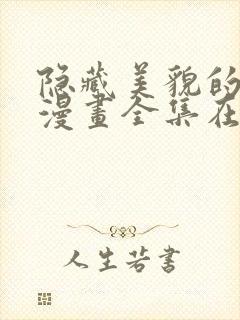 隐藏美貌的
漫畫全集在
人生若書